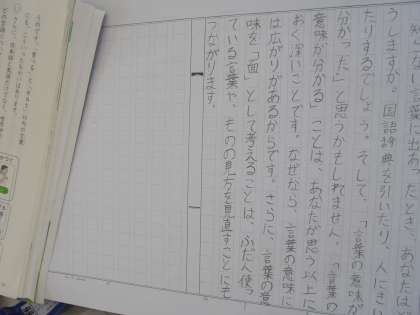 知らない言葉に出あったとき、あなたは
うしますか。国語辞典を引いたり、人にきい
たりするでしょう。そして、「言葉の意味が
分かった」と思うかもしれません。「言葉の
意味が分かる」ことは、あなたが思う以上に
おく深いことです。なぜなら、言葉の意味に
は広がりがあるからです。さらに、言葉の意
味を「面」として考えることは、ふだん使っ
ている言葉や、ものの見方を見直すことにも
つながります。